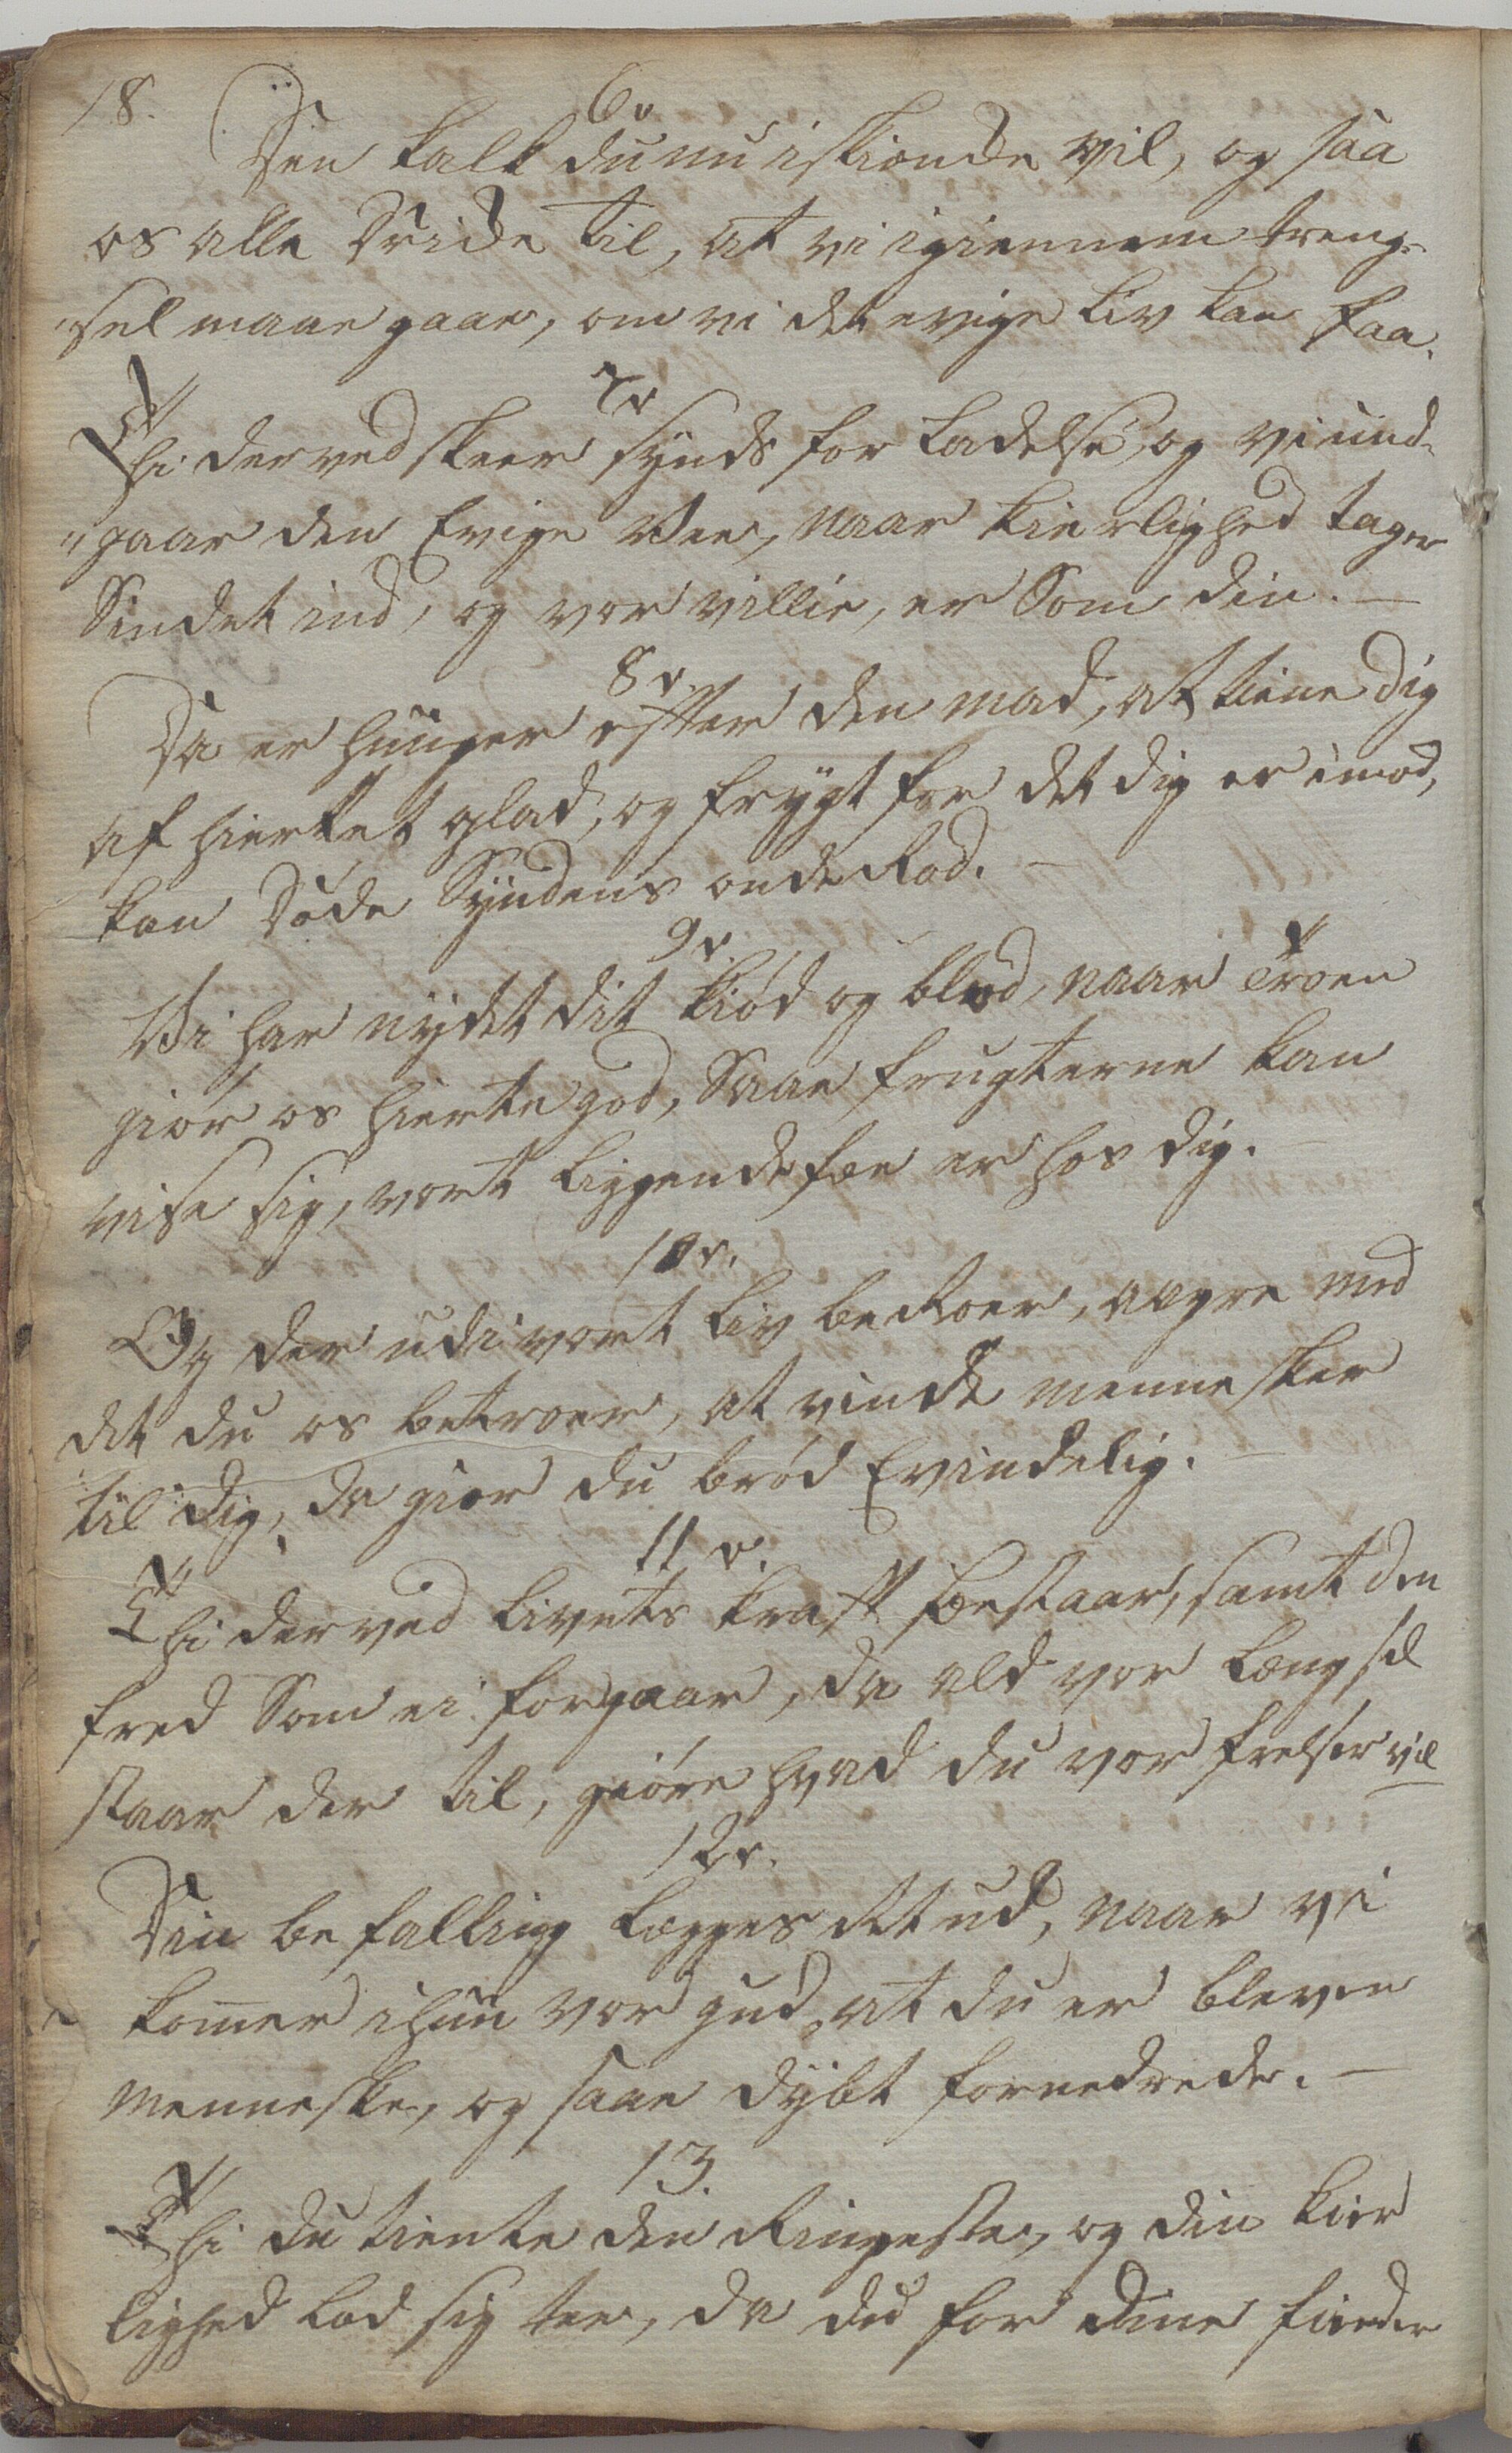 18.
6v
Den kalk du nu iskiænde vil, og saa
os alle Dride til, at vi igiennem treng-
"sel maae gaae, om vi det evige liv kan faa.
7v
Thi derved skeer synds for ladelse, og vi und-
"gaar den Evige Vee, naar kierlighed tager
Sindet ind, og vor villie, er Som din. —
8v.
Da er hunger efter den mad, at tiene dig
af hiertet glad, og frygt for det dig er imod,
kan Døde Syndens onde Rod. —
9v.
Vi har nydet dit kiød og blod, naar Troen
giør os hierte god, Saae frugterne kan
vise sig, vort liggende fæe er hos dig. —
10v.
Og der udi vort liv beroer, aagre med
det du os betroer, at vinde menne sker
til dig, da giør du brød Evindelig. —
11 v.
Thi derved livets kraft bestaar, samt den
fred Som ei forgaar, da ald vor længsel
staar der til, giøre hvad du vor frelser vil
12v.
Din be falling lægges ret ud, naar vi
komer ihu vor gud, at du er bleven
menneske, og saae dybt fornedrede. —
13.
Thi du tiente den Ringeste, og din kier
lighed lod sig tee, da du for dine fiender